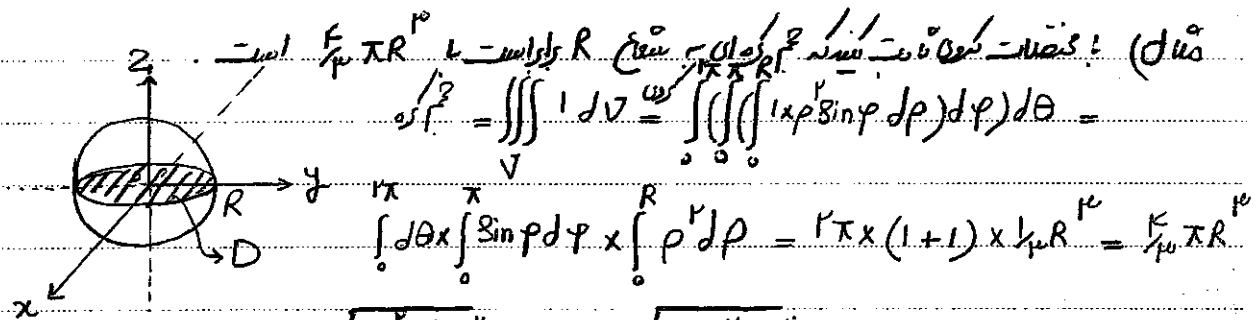 مثال) با مختصات کروی ثابت کنید حجم کره‌ای به شعاع R برابر است با ۴/۳ πR^۳ است.
حجم کره = ∭_V 1 dV = کروی ∫_0^{۲π}(∫_0^π(∫_0^R 1×ρ^۲ Sinφ dρ)dφ)dθ =
∫_0^{۲π} dθ × ∫_0^π Sinφ dφ × ∫_0^R ρ^۲ dρ = ۲π×(1+1)×۱/۳ R^۳ = ۴/۳ πR^۳
Z
y
R
D
x